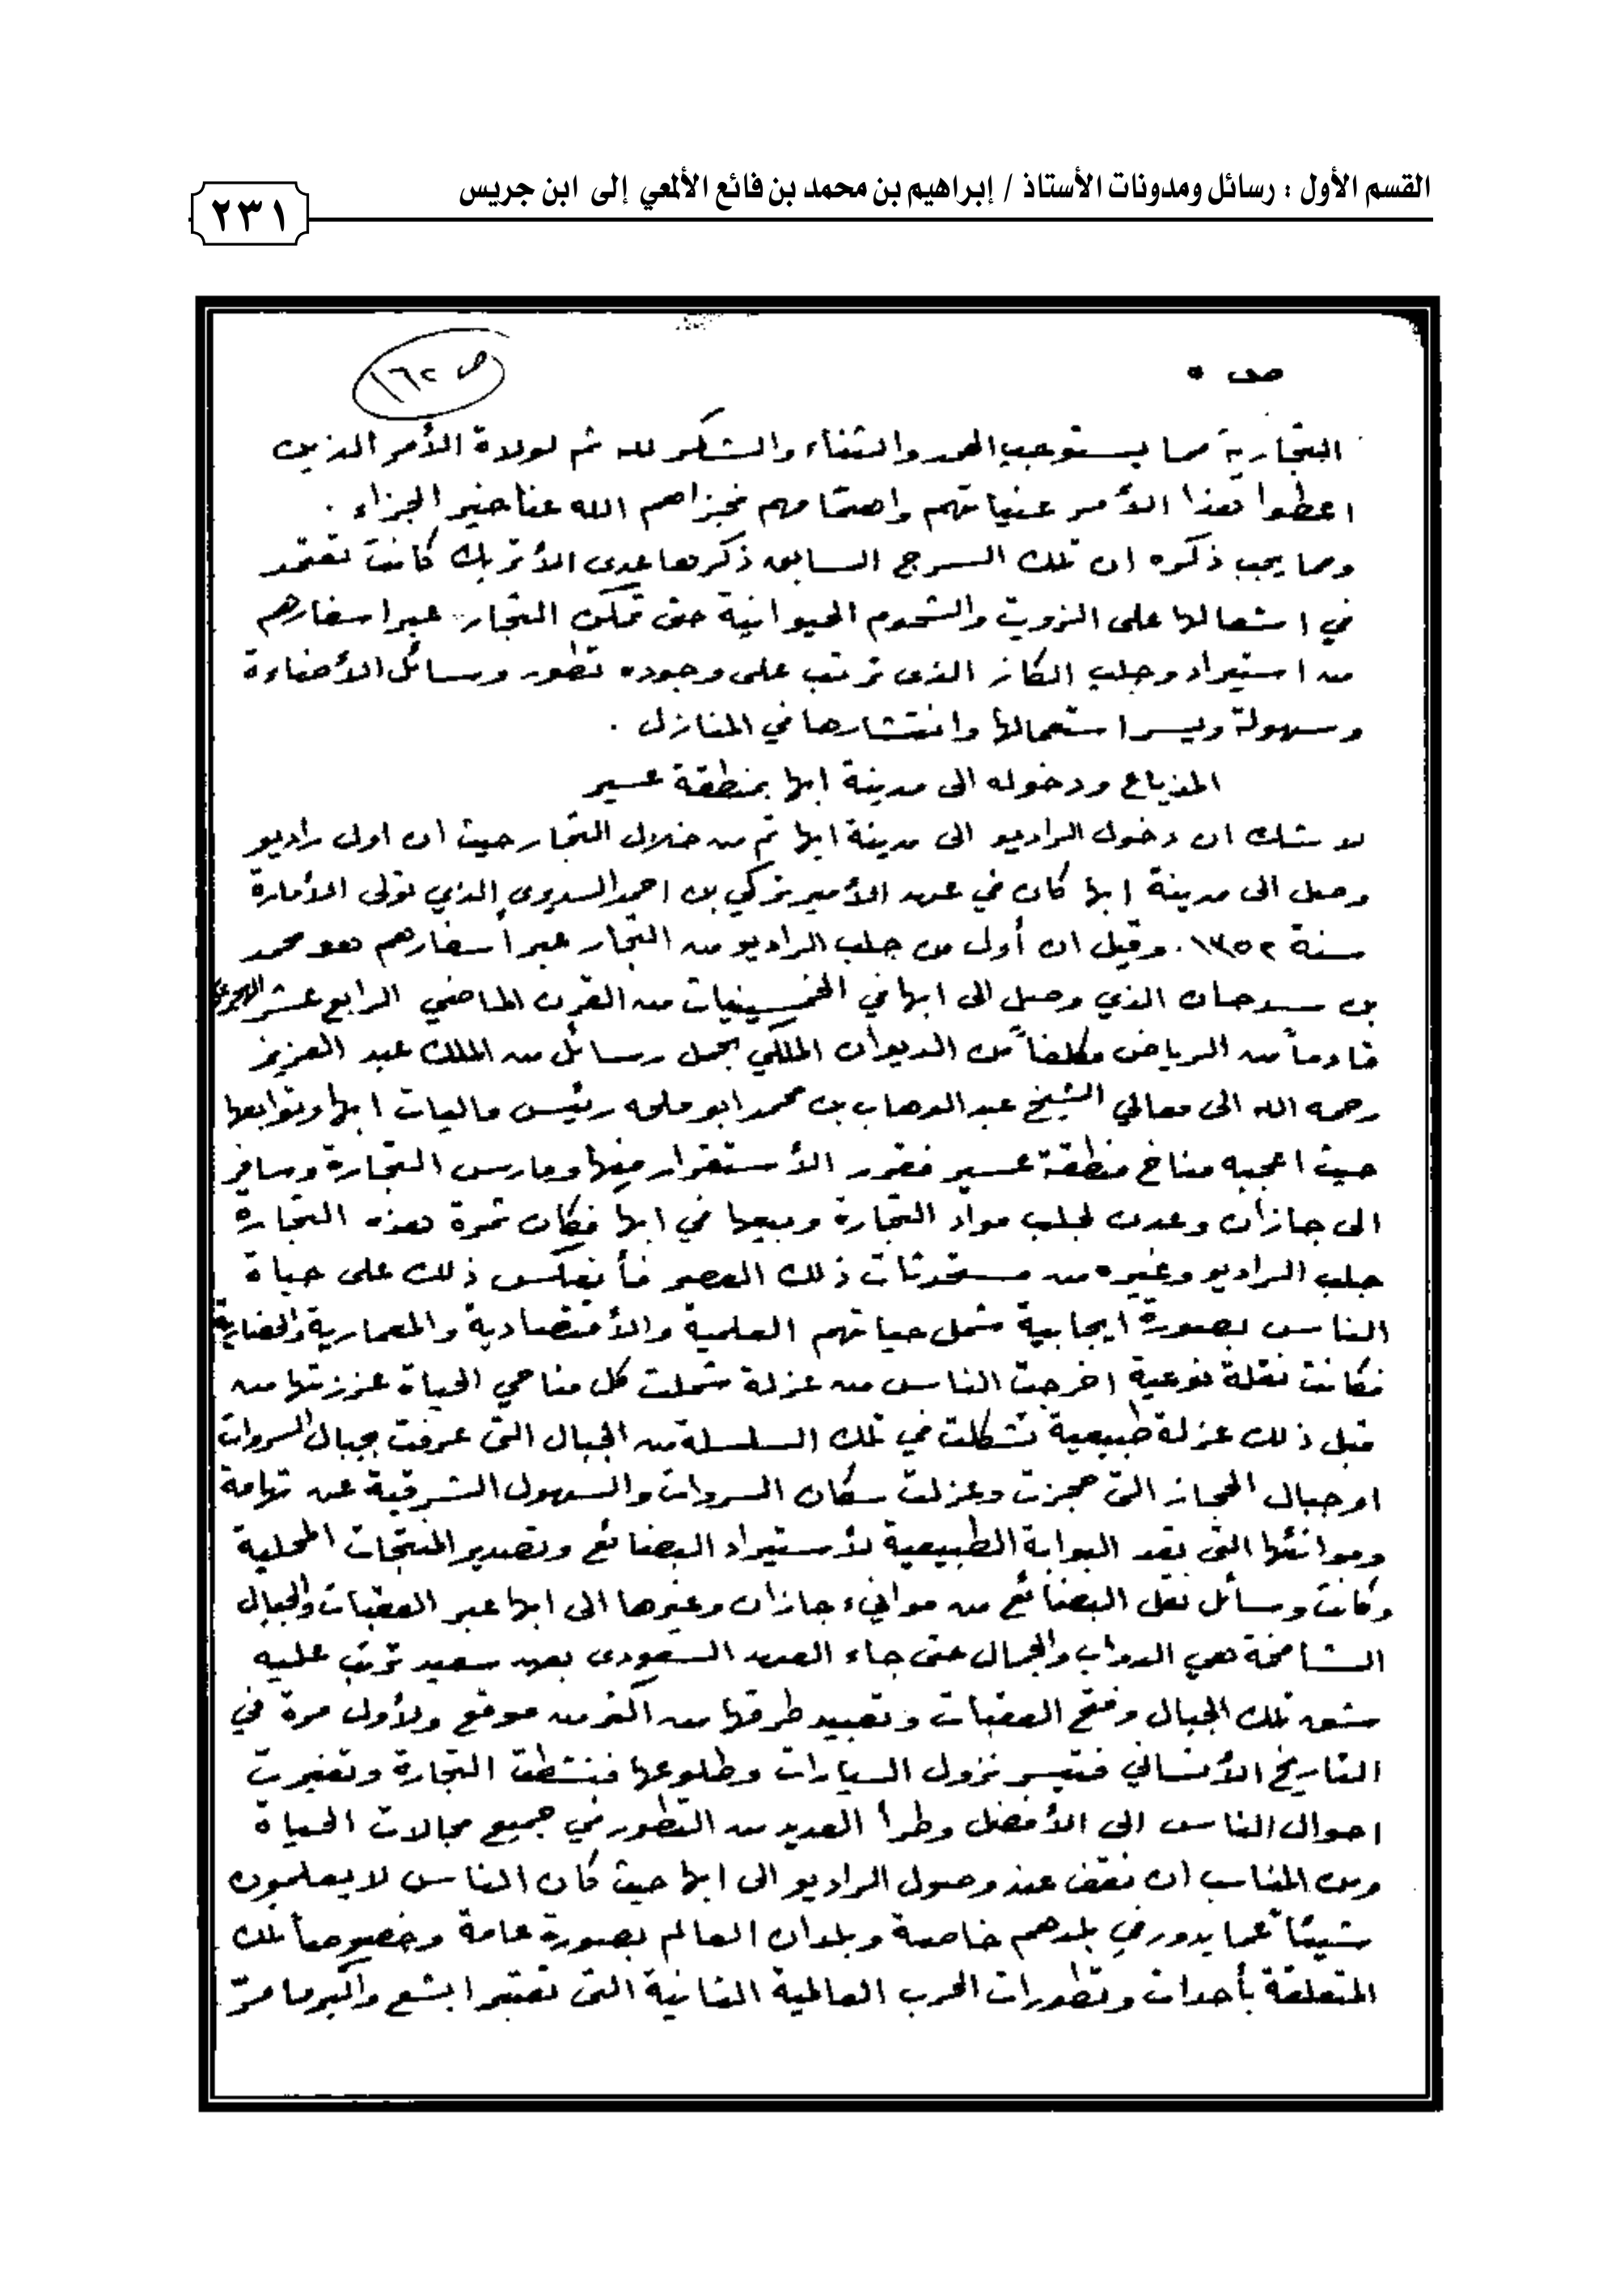 القسم الأول : رسائل ومدونات الأستاذ / إبراهيم بن محمد بن فائع الألمعي إلى ابن جريس
٢٣١
ص ٥
ص ١٦٢
التجارية مما يستوجب الحمد والثناء والشكر لله ثم لولاة الأمر الذين
اعطوا هذا الأمر عنياتهم واهتمامهم فجزاهم الله عنا خير الجزاء .
ومما يجب ذكره ان تلك السرج السابق ذكرها عدى الأتريك كانت تعتمد
في اشعالها على الزويت والشحوم الحيوانية حتى تمكن التجار عبر اسفارهم
من استيراد وجلب الكاز الذى ترتب على وجوده تطور وسائل الأضاءة
وسهولة ويسر استعمالها وانتشارها في المنازل .
المذياع ودخوله الى مدينة ابها بمنطقة عسير
لا شك ان دخول الراديو الى مدينة ابها تم من خلال التجار حيث ان اول راديو
وصل الى مدينة ابها كان في عهد الأمير تركي بن احمد السديرى الذي تولى الأمارة
سنة ١٣٥٢ . وقيل ان أول من جلب الراديو من التجار عبر أسفارهم هو محمد
بن سرحان الذي وصل الى ابها في الخمسينيات من القرن الماضي الرابع عشر الهجري
قادماً من الرياض مكلفاً من الديوان الملكي بحمل رسائل من الملك عبد العزيز
رحمه الله الى معالي الشيخ عبد الوهاب بن محمد ابو ملحه رئيس ماليات ابها وتوابعها
حيث اعجبه مناخ منطقة عسير فقرر الأستقرار فيها ومارس التجارة وسافر
الى جازان وعدن لجلب مواد التجارة وبيعها في ابها فكان ثمرة هذه التجارة
جلب الراديو وغيره من مستحدثات ذلك العصر فأنعكس ذلك على حياة
الناس بصورة ايجابية شمل حياتهم العلمية والأقتصادية والمعمارية والحضارية
فكانت نقلة نوعية اخرجت الناس من عزلة شملت كل مناحي الحياة عززتها من
قبل ذلك عزلة طبيعية تشكلت في تلك السلسلة من الجبال التى عرفت بجبال السروات
او جبال الحجاز التى حجزت وعزلت سكان السروات والسهول الشرقية عن تهامة
وموانئها التى تعد البوابة الطبيعية لأستيراد البضائع وتصدير المنتجات المحلية
وكانت وسائل نقل البضائع من موانيء جازان وغيرها الى ابها عبر العقبات والجبال
الشامخة هي الدواب والجمال حتى جاء العهد السعودى بعهد سعيد ترتب عليه
شق تلك الجبال وفتح العقبات وتعبيد طرقها من اكثر من موقع ولأول مرة في
التاريخ الأنساني فتيسر نزول السيارات وطلوعها فنشطت التجارة وتغيرت
احوال الناس الى الأفضل وطرأ العديد من التطور في جميع مجالات الحياة
ومن المناسب ان نقف عند وصول الراديو الى ابها حيث كان الناس لا يعلمون
شيئاً عما يدور في بلدهم خاصة وبلدان العالم بصورة عامة وخصوصاً تلك
المتعلقة بأحداث وتطورات الحرب العالمية الثانية التى تعتبر ابشع واكبر ما مرّ